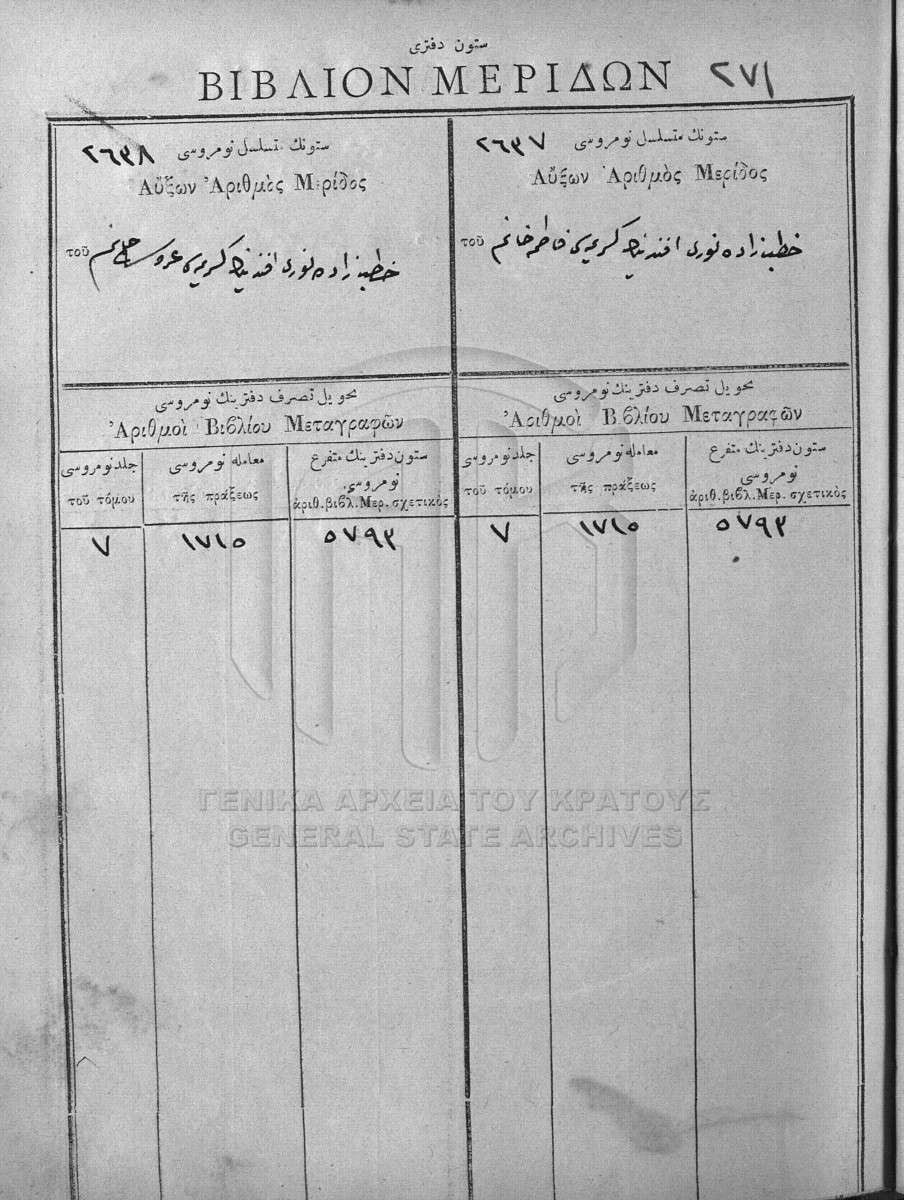 ستون دفتری
ΒΙΒΛΙΟΝ ΜΕΡΙΔΩΝ ٢٧١
ستونك متسلسل نومروسی ٢٦٣٧
Αὔξων Ἀριθμὸς Μερίδος
τοῦ خطيبزاده نوری افندينك كريمه‌سی فاطمه خانم
تحويل تصرف دفترينك نومروسی
Ἀριθμοὶ Βιβλίου Μεταγραφῶν
ستون دفترينك متفرع نومروسی
ἀριθ. βιβλ. Μερ. σχετικὸς
معامله نومروسی
τῆς πράξεως
جلد نومروسی
τοῦ τόμου
٥٧٩٣ ١٧١٥ ٧
ستونك متسلسل نومروسی ٢٦٣٨
Αὔξων Ἀριθμὸς Μερίδος
τοῦ خطيبزاده نوری افندينك كريمه‌سی عروس خانم
تحويل تصرف دفترينك نومروسی
Ἀριθμοὶ Βιβλίου Μεταγραφῶν
ستون دفترينك متفرع نومروسی
ἀριθ. βιβλ. Μερ. σχετικὸς
معامله نومروسی
τῆς πράξεως
جلد نومروسی
τοῦ τόμου
٥٧٩٣ ١٧١٥ ٧
ΓΕΝΙΚΑ ΑΡΧΕΙΑ ΤΟΥ ΚΡΑΤΟΥΣ
GENERAL STATE ARCHIVES